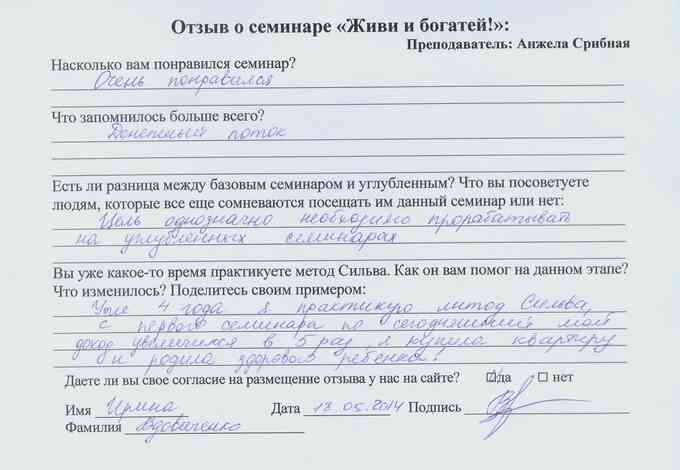 Отзыв о семинаре «Живи и богатей!»:
Преподаватель: Анжела Срибная
Насколько вам понравился семинар?
Очень понравился
Что запомнилось больше всего?
Денежный поток
Есть ли разница между базовым семинаром и углубленным? Что вы посоветуете
людям, которые все еще сомневаются посещать им данный семинар или нет:
Цель однозначно необходимо прорабатывать
на углубленных семинарах
Вы уже какое-то время практикуете метод Сильва. Как он вам помог на данном этапе?
Что изменилось? Поделитесь своим примером:
Уже 4 года я практикую метод Сильва,
с первого семинара по сегодняшний мой
доход увеличился в 5 раз, я купила квартиру
и родила здорового ребенка!
Даете ли вы свое согласие на размещение отзыва у нас на сайте? да нет
Имя Ирина Дата 18.05.2014 Подпись
Фамилия Вдовиченко